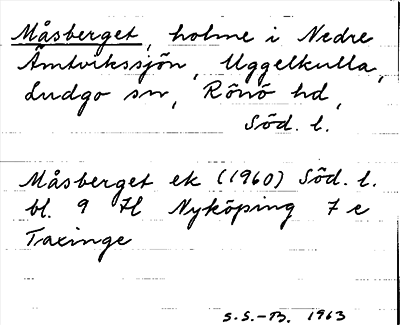 Måsberget, holme i Nedre
Ämtvikssjön, Uggelkulla,
Ludgo sn, Rönö hd,
Söd. l.
Måsberget ek (1960) Söd. l.
bl. 9 H Nyköping 7 e
Taxinge
S.S.-B. 1963